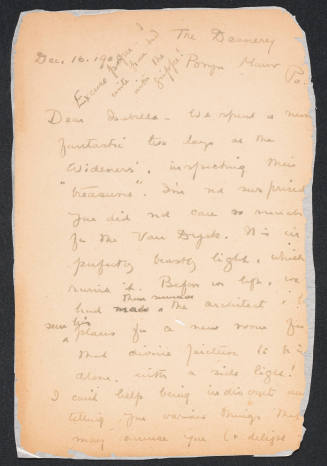 The Deanery
Dec. 16. 190
Bryn Mawr
Pa.
Excuse pencil!
in
with the
grippe!
Dear Isabella - We spent a most
fantastic two days at the
Wideners', inspecting their
"treasures". I'm not surprised
you did not care so much
for the Van Dyck. It is in
perfectly beastly light, which
ruins it. Before we left, we
had them summon the architect, &
saw his plans for a new room for
that divine picture to be in
alone, with a side light!
I can't help being indiscreet and
telling you various things that
may amuse you (& delight